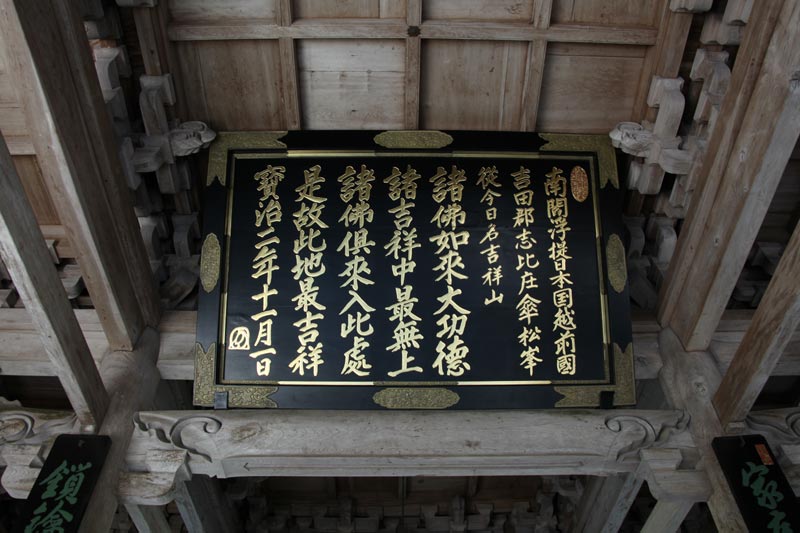 南閻浮提日本国越前國
吉田郡志比庄傘松峯
從今日名吉祥山
諸佛如來大功德
諸吉祥中最無上
諸佛俱來入此處
是故此地最吉祥
寶治二年十一月一日
鎖
家